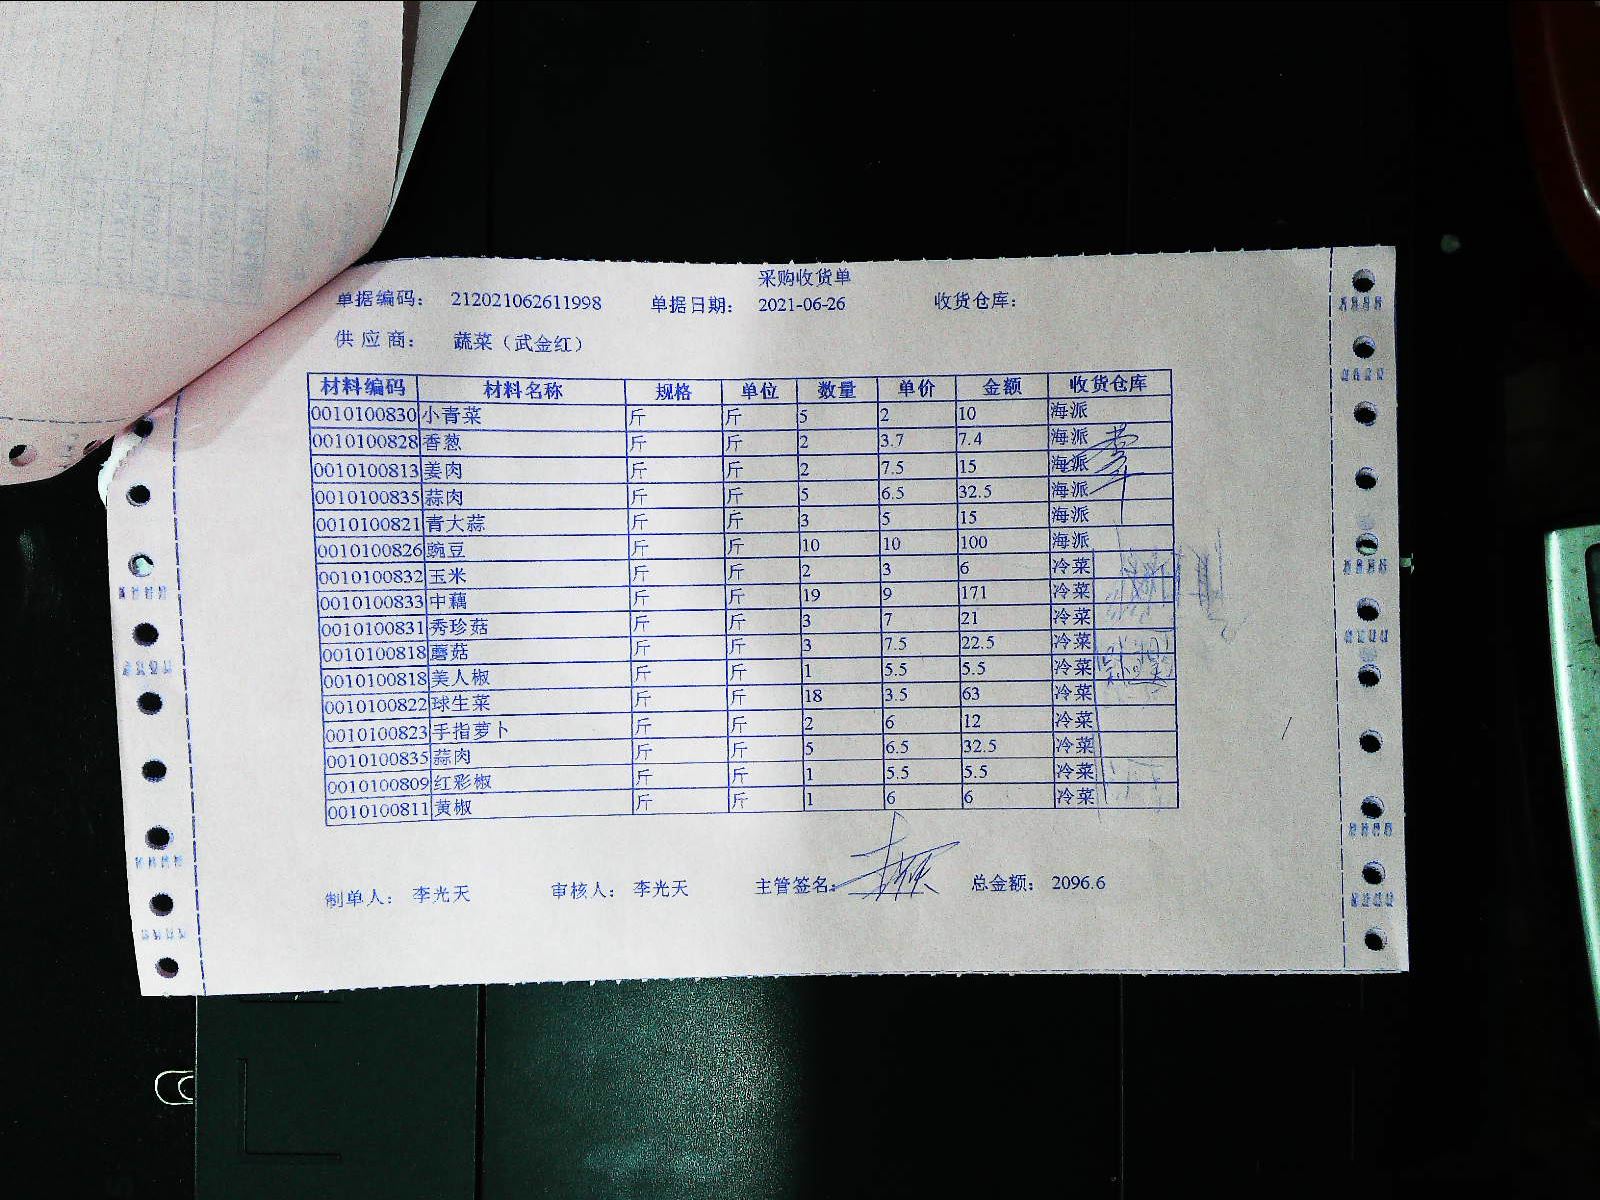 采购收货单
单据编码： 212021062611998 单据日期： 2021-06-26 收货仓库：
供应商： 蔬菜（武金红）
材料编码 材料名称 规格 单位 数量 单价 金额 收货仓库
0010100830 小青菜 斤 斤 5 2 10 海派
0010100828 香葱 斤 斤 2 3.7 7.4 海派
0010100813 姜肉 斤 斤 2 7.5 15 海派
0010100835 蒜肉 斤 斤 5 6.5 32.5 海派
0010100821 青大蒜 斤 斤 3 5 15 海派
0010100826 豌豆 斤 斤 10 10 100 海派
0010100832 玉米 斤 斤 2 3 6 冷菜
0010100833 中藕 斤 斤 19 9 171 冷菜
0010100831 秀珍菇 斤 斤 3 7 21 冷菜
0010100818 蘑菇 斤 斤 3 7.5 22.5 冷菜
0010100818 美人椒 斤 斤 1 5.5 5.5 冷菜
0010100822 球生菜 斤 斤 18 3.5 63 冷菜
0010100823 手指萝卜 斤 斤 2 6 12 冷菜
0010100835 蒜肉 斤 斤 5 6.5 32.5 冷菜
0010100809 红彩椒 斤 斤 1 5.5 5.5 冷菜
0010100811 黄椒 斤 斤 1 6 6 冷菜
制单人： 李光天 审核人： 李光天 主管签名： 总金额： 2096.6